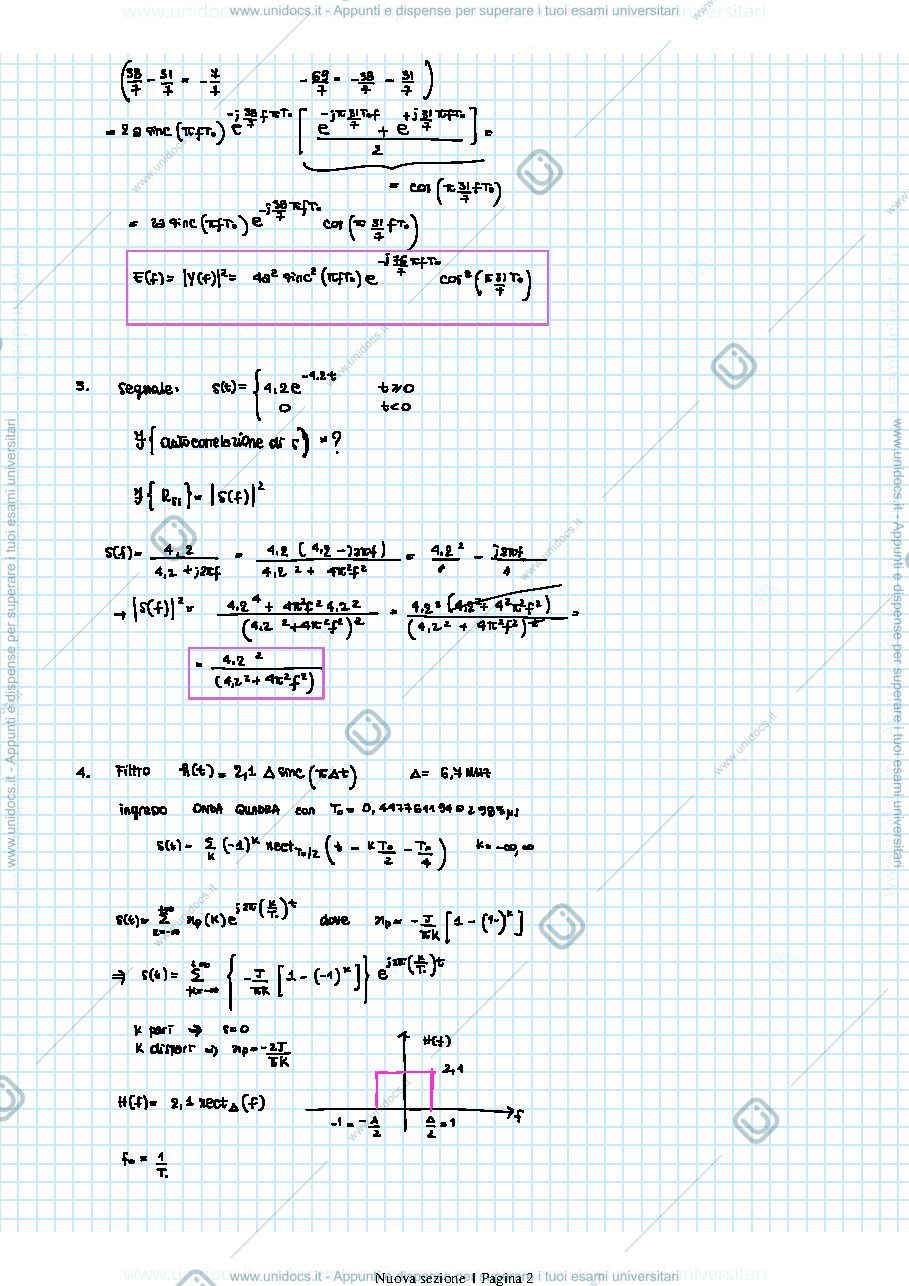 www.unidocs.it - Appunti e dispense per superare i tuoi esami universitari
(38/7 - 31/7 = -7/7      -69/7 = -38/7 - 31/7)
= 2a sinc(πfT₀) e^{-j 38/7 fπT₀} [ (e^{-jπ 31/7 T₀f} + e^{+j 31/7 πfT₀}) / 2 ] =
= cos(π 31/7 fT₀)
= 2a sinc(πfT₀) e^{-j 38/7 πfT₀} cos(π 31/7 fT₀)
E(f) = |Y(f)|² = 4a² sinc²(πfT₀) e^{-j 76/7 πfT₀} cos²(π 31/7 T₀)
3. Segnale: s(t) = { 4,2e^{-4.2t}   t≥0
0   t<0
F{autocorrelazione di s} = ?
F{Rss} = |S(f)|²
S(f) = 4,2 / (4,2 + j2πf) = 4,2 (4,2 - j2πf) / (4,2² + 4π²f²) = 4,2² / " - j2πf / "
→ |S(f)|² = (4,2⁴ + 4π²f² 4,2²) / (4,2² + 4π²f²)² = 4,2² (4,2² + 4²π²f²) / (4,2² + 4π²f²)² =
= 4,2² / (4,2² + 4π²f²)
4. Filtro h(t) = 2,1 Δ sinc(πΔt)   Δ = 6,7 MHz
ingresso ONDA QUADRA con T₀ = 0,4477611940298 3 μs
s(t) = Σ_k (-1)^k rect_{T₀/2} (t - k T₀/2 - T₀/4)   k = -∞,∞
s(t) = Σ_{k=-∞}^{+∞} x_p(k) e^{j2π(k/T₀)t} dove x_p = -J/πk [1 - (1-)^k]
⇒ s(t) = Σ_{k=-∞}^{+∞} { -J/πk [1 - (-1)^k] } e^{j2π(k/T₀)t}
k pari ⇒ s=0
k dispari ⇒ x_p = -2J/πk
H(f)
2,1
H(f) = 2,1 rect_Δ(f)
f
-1 = -Δ/2   Δ/2 = 1
f₀ = 1/T₀
Nuova sezione 1 Pagina 2
www.unidocs.it - Appunti e dispense per superare i tuoi esami universitari